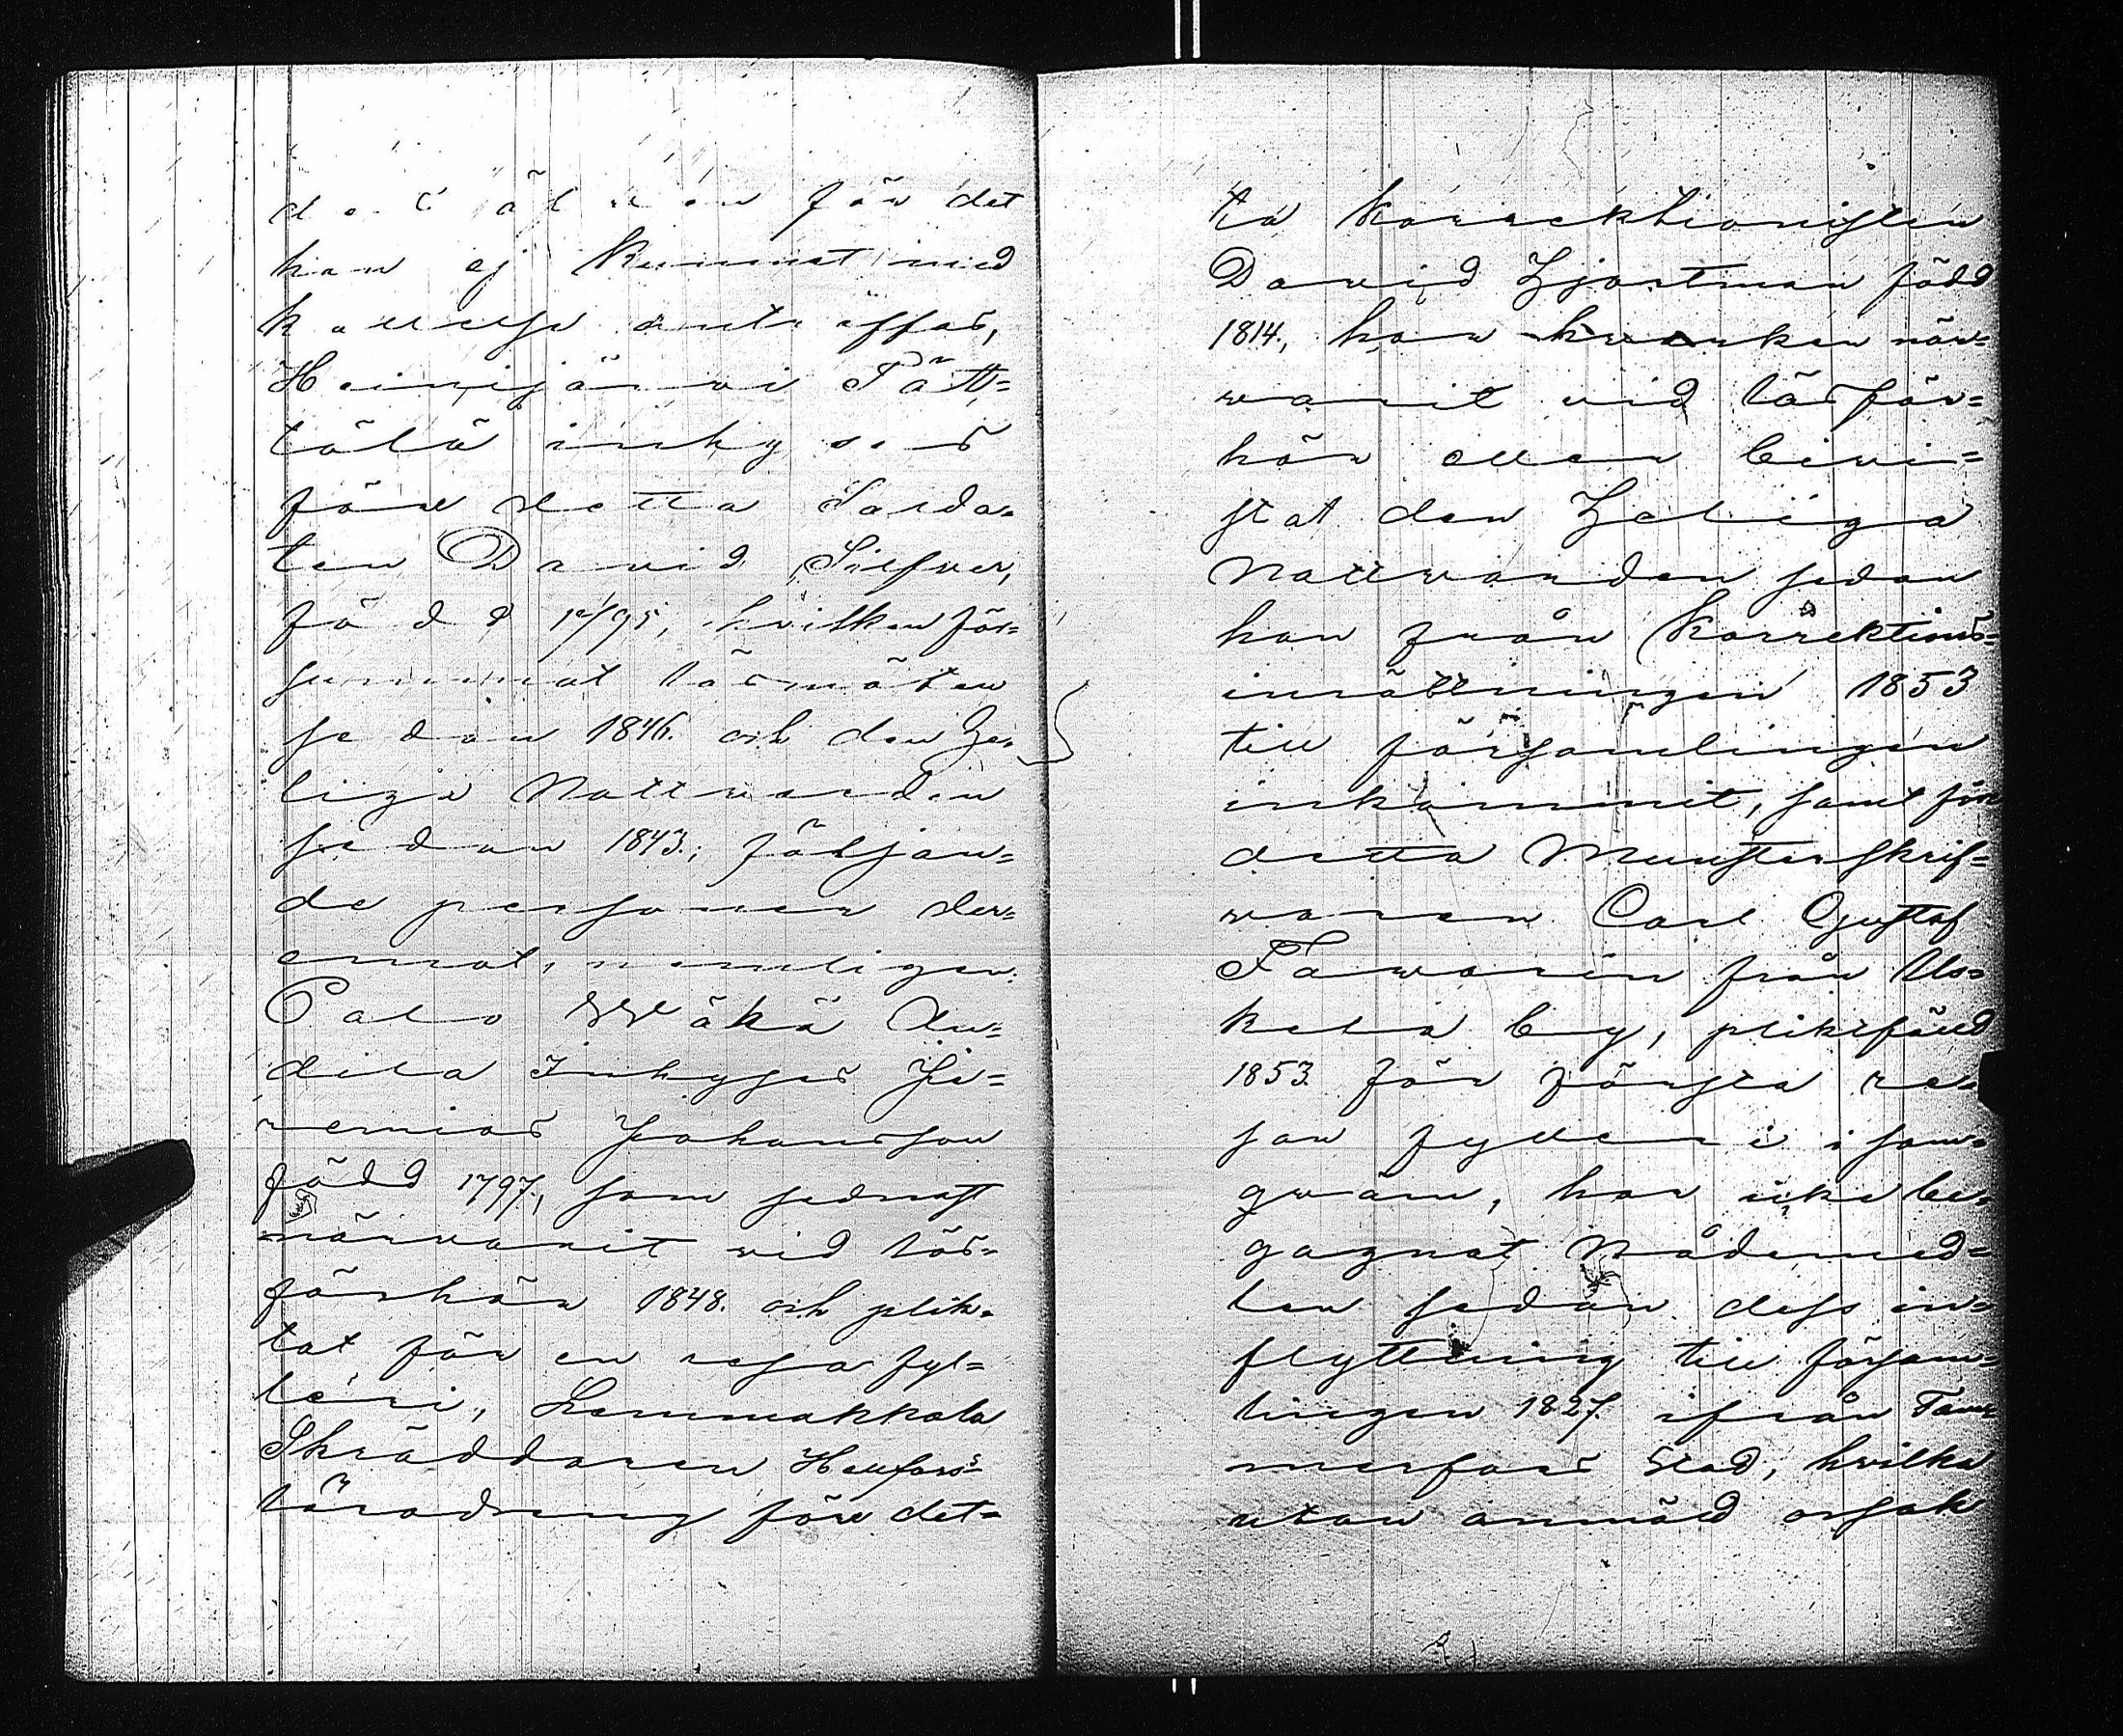 för det
han ej kunnat med
kallelse anträffas,
Heinijärvi Pätt=
tölä inhyses
före detta Solda=
ten David Silfver,
född 12/95, hvilken för=
summat läsmöten
sedan 1846. och den He=
liga Nattvarden
sedan 1843.; följan=
de personer der=
emot, nemligen:
Palo Wäkä An=
dila Inhyses Je=
remias Johansson
född 1797., som sednast
närvarit vid läs=
förhör 1848. och plik=
tat för en resa fyl=
leri, Lammakkala
Skräddaren Hellfors
lärodreng före det=
ta Korrektionisten
David Hjortman född
1814., har hvarken när=
varit vid läsför=
hör eller bevi=
stat den Heliga
Nattvarden sedan
han från Korrektions=
inrättningen 1853
till församlingen
inkommit, samt för
detta Munsterskrif=
varen Carl Gustaf
Favorin från Us=
kela by, pliktfälld
1853. för första re=
san fylleri i sam=
qväm, har icke be=
gagnat Nådemed=
len sedan dess in=
flyttning till försam=
lingen 1827. ifrån Tam=
merfors Stad, hvilka
utan anmäld orsak